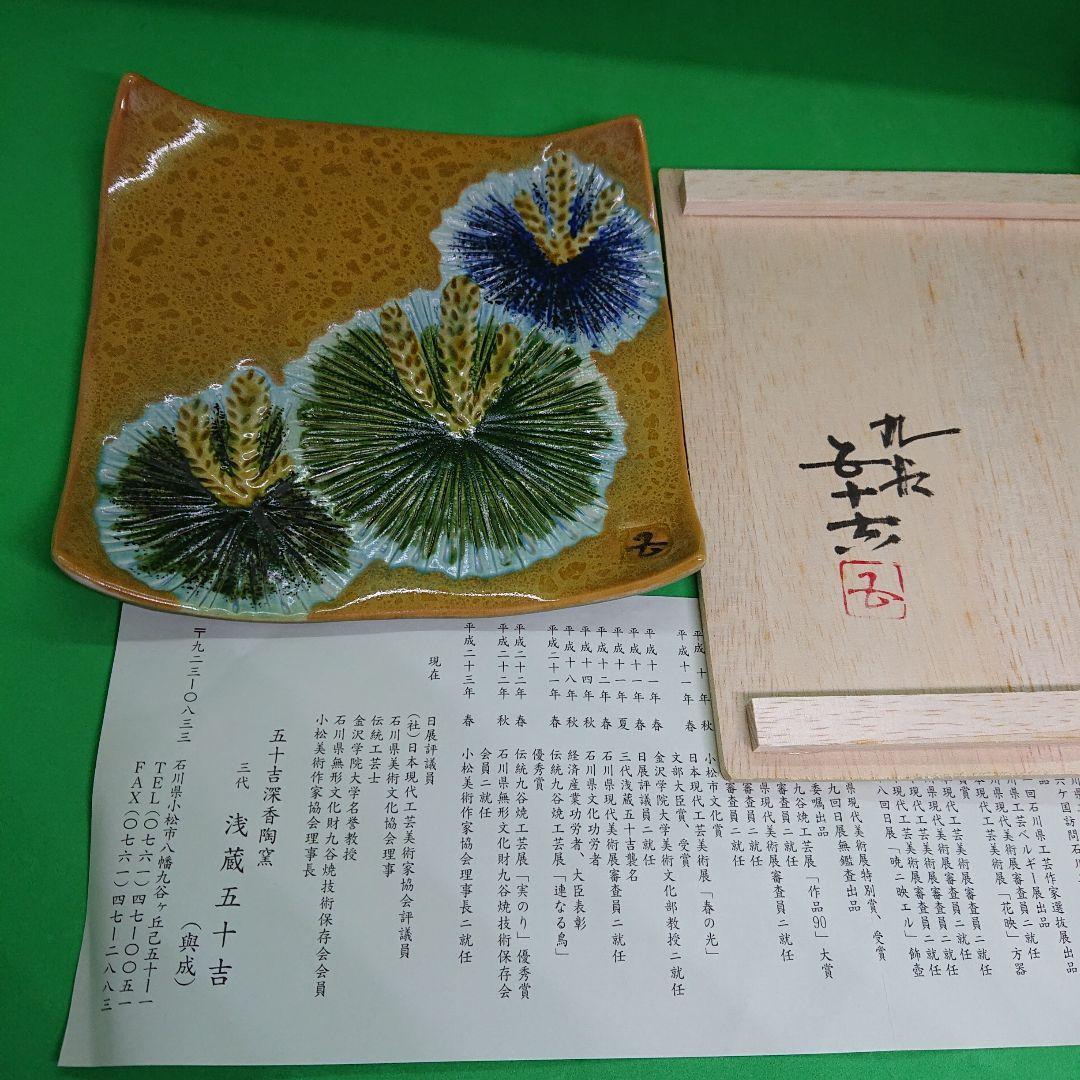 九谷
五十吉
五
五
川県
六ケ国訪問石川
石川県工芸作家選抜展出品
工芸ベルギー展出品
現代工芸美術展「花映」方器
現代美術展審査員ニ就任
工芸美術展審査員ニ就任
八回日展「暁ニ映エル」飾壺
県現代美術展特別賞、受賞
九回日展無鑑査出品
委嘱出品
九谷焼工芸展「作品90」大賞
審査員ニ就任
県現代美術展審査員ニ就任
審査員ニ就任
平成十一年 秋 小松市文化賞
平成十一年 春 日本現代工芸美術展「春の光」
文部大臣賞、受賞
平成十一年 春 金沢学院大学美術文化部教授ニ就任
平成十一年 春 日展評議員ニ就任
平成十一年 夏 三代浅蔵五十吉襲名
平成十二年 春 石川県現代美術展審査員ニ就任
平成十四年 秋 石川県文化功労者
平成十八年 秋 経済産業功労者、大臣表彰
平成二十一年 春 伝統九谷焼工芸展「連なる鳥」
優秀賞
平成二十二年 春 伝統九谷焼工芸展「実のり」優秀賞
平成二十二年 秋 石川県無形文化財九谷焼技術保存会
会員ニ就任
平成二十三年 春 小松美術作家協会理事長ニ就任
現在
日展評議員
(社)日本現代工芸美術家協会評議員
石川県美術文化協会理事
伝統工芸士
金沢学院大学名誉教授
石川県無形文化財九谷焼技術保存会会員
小松美術作家協会理事長
五十吉深香陶窯
三代 浅蔵五十吉
(與成)
〒九二三―〇八三三 石川県小松市八幡九谷ヶ丘己五十―一
TEL(〇七六一)四七―〇〇五一
FAX(〇七六一)四七―二八八三